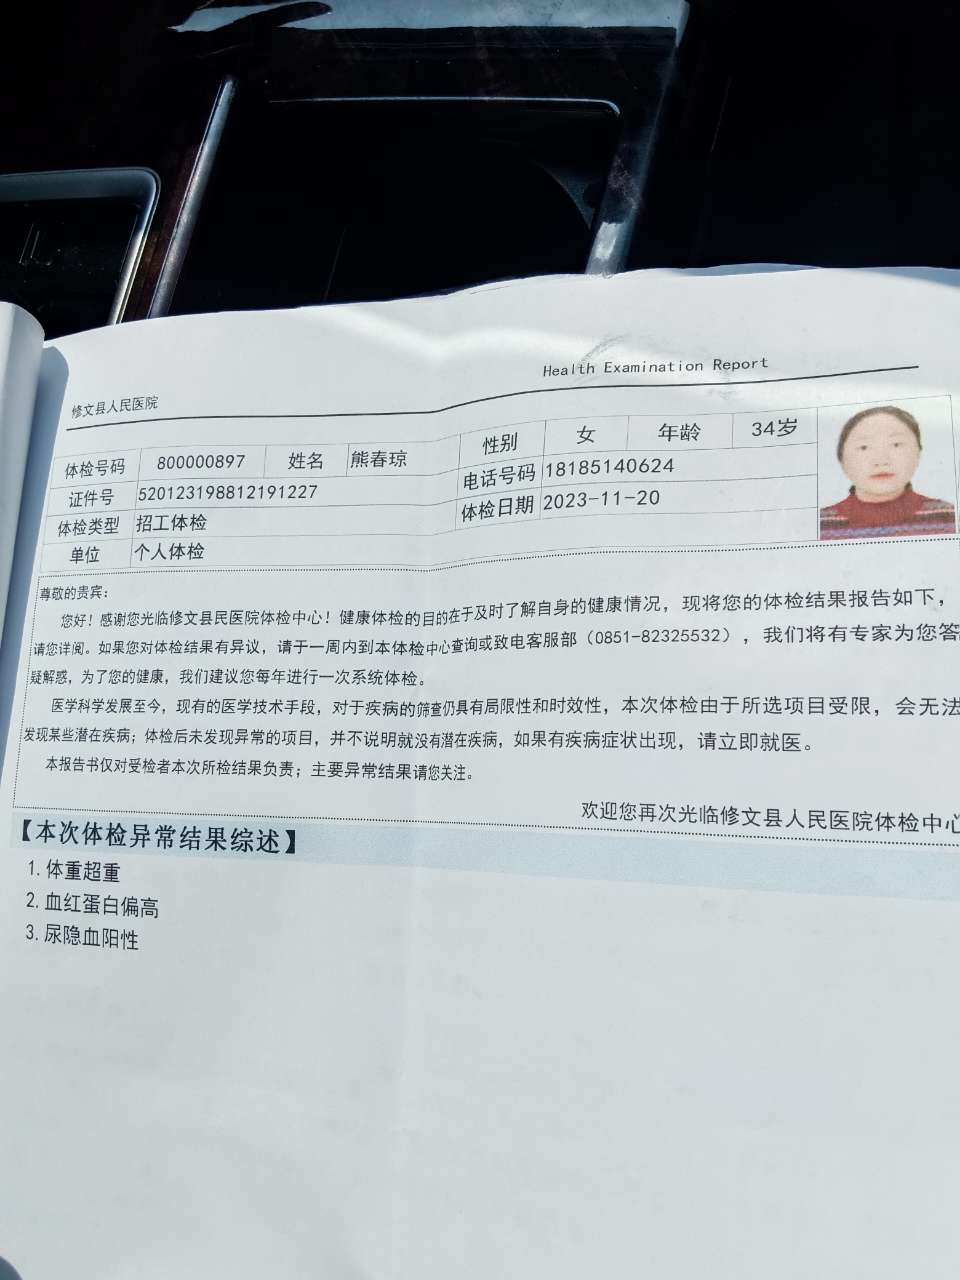 Health Examination Report
修文县人民医院
体检号码 800000897 姓名 熊春琼 性别 女 年龄 34岁
证件号 520123198812191227 电话号码 18185140624
体检类型 招工体检 体检日期 2023-11-20
单位 个人体检
尊敬的贵宾：
您好！感谢您光临修文县民医院体检中心！健康体检的目的在于及时了解自身的健康情况，现将您的体检结果报告如下，
请您详阅。如果您对体检结果有异议，请于一周内到本体检中心查询或致电客服部（0851-82325532），我们将有专家为您答
疑解惑，为了您的健康，我们建议您每年进行一次系统体检。
医学科学发展至今，现有的医学技术手段，对于疾病的筛查仍具有局限性和时效性，本次体检由于所选项目受限，会无法
发现某些潜在疾病；体检后未发现异常的项目，并不说明就没有潜在疾病，如果有疾病症状出现，请立即就医。
本报告书仅对受检者本次所检结果负责；主要异常结果请您关注。
欢迎您再次光临修文县人民医院体检中心
【本次体检异常结果综述】
1.体重超重
2.血红蛋白偏高
3.尿隐血阳性